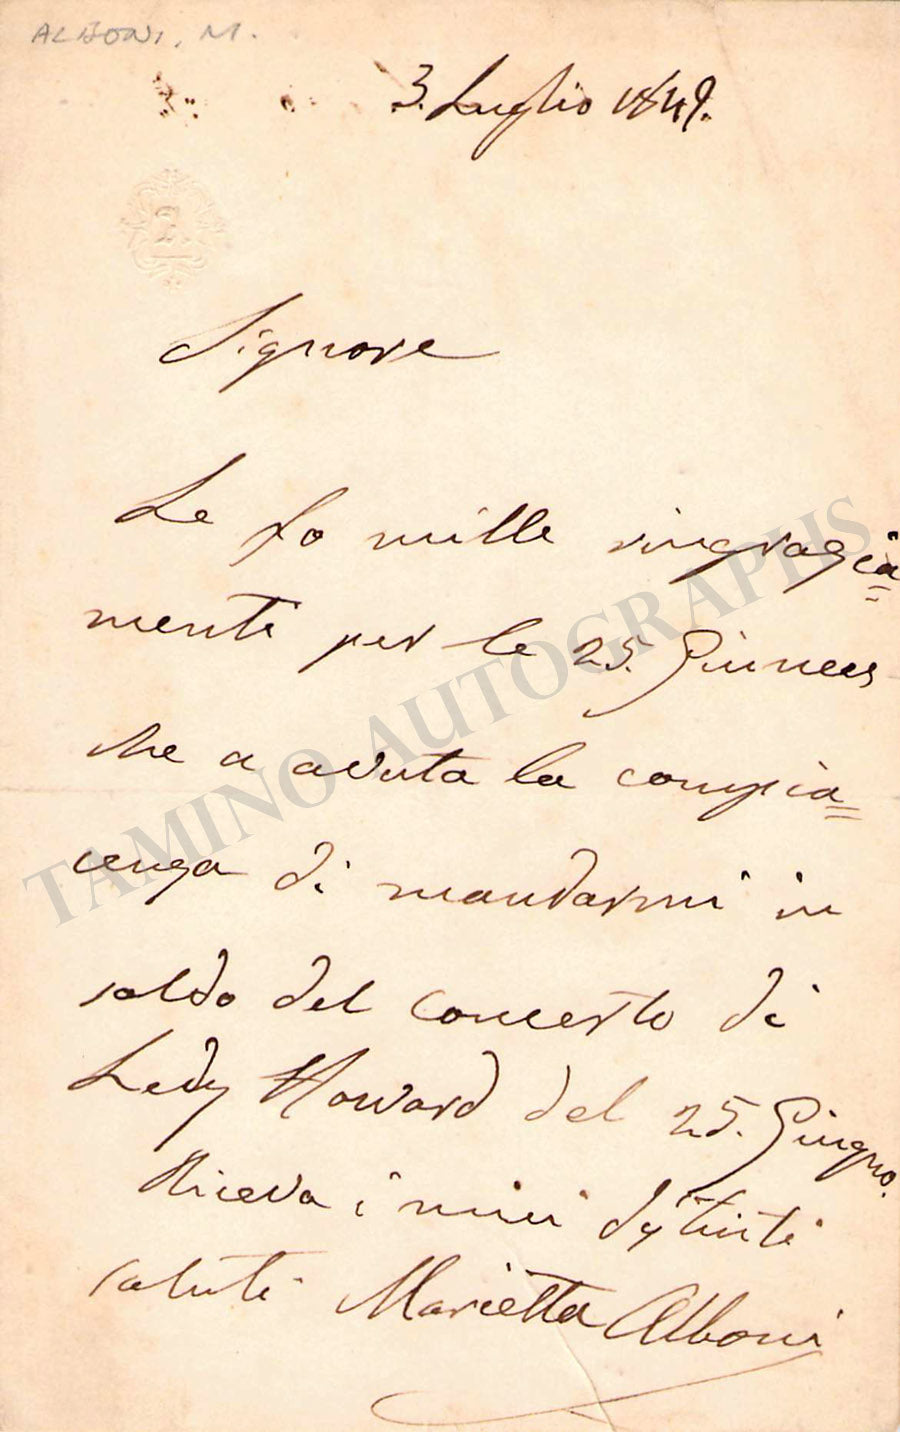 ALBONI, M.
3. Luglio 1849.
Signore
Le fo mille ringragia=
menti per le 25. Guinees
che a avuta la compia=
cenza di mandarmi in
saldo del concerto di
Lady Howard del 25. Giugno.
Riceva i miei distinti
saluti Marietta Alboni
TAMINO AUTOGRAPHS